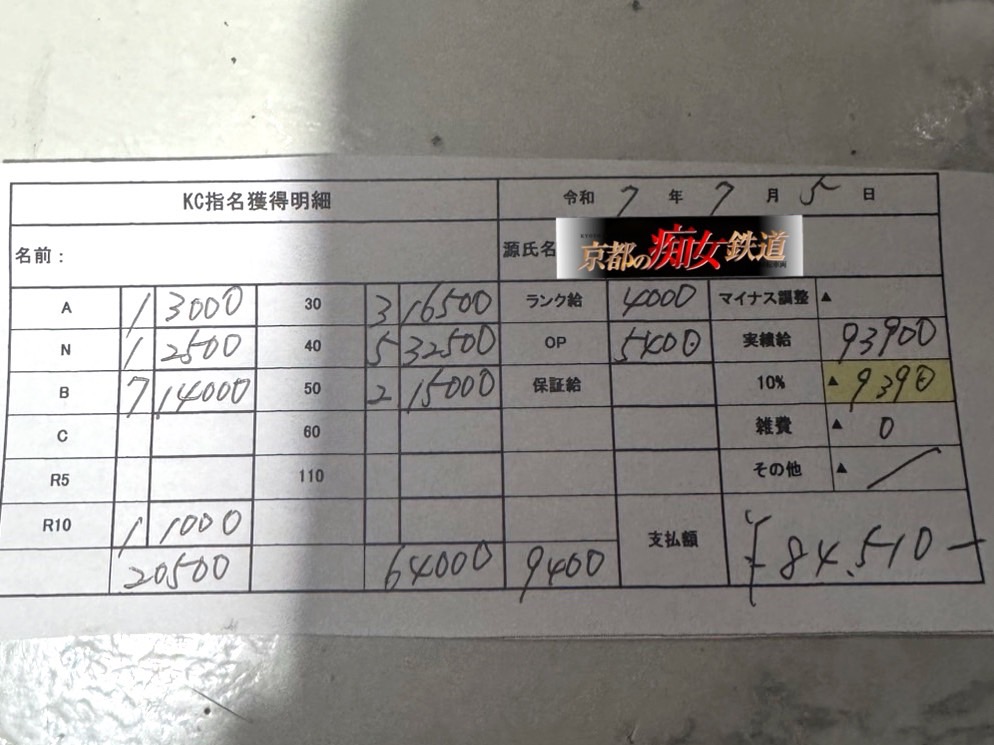 KC指名獲得明細 令和 7 年 7 月 5 日
名前： 源氏名 京都の痴女鉄道
A 1 3000 30 3 16500 ランク給 4000 マイナス調整 ▲
N 1 2500 40 5 32500 OP 5400 実績給 93900
B 7 14000 50 2 15000 保証給 10% ▲ 9390
C 60 雑費 ▲ 0
R5 110 その他 ▲ /
R10 1 1000 支払額 ¥84,510-
20500 64000 9400